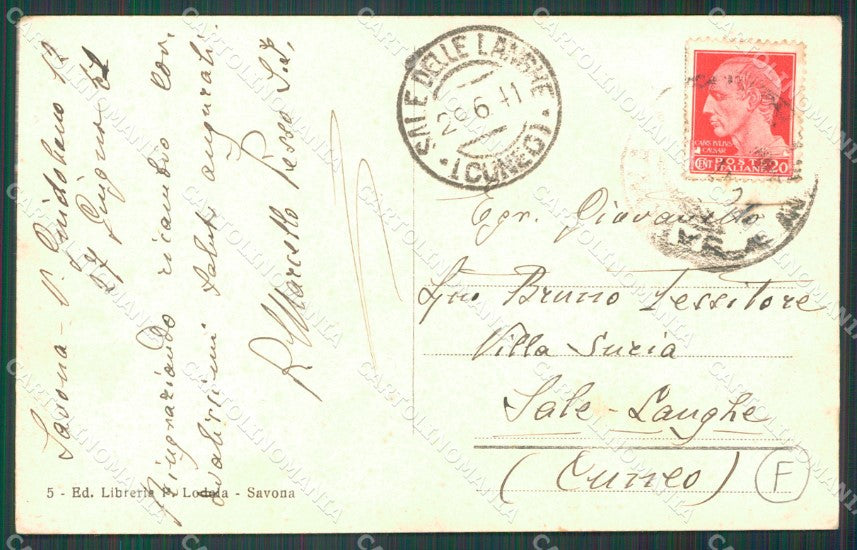 Savona - V. Guidobono 12
27 Giugno 41
Ringraziando ricambio con
salutissimi saluti augurali.
R. Marcello Pesso S.d.
SALE DELLE LANGHE
28 6 41
(CUNEO)
CAIVS IVLIVS
CAESAR
CENT POSTE ITALIANE 20
Egr. Giovanotto
Bruno Tessitore
Villa Suria
Sale-Langhe
(Cuneo)
F
5 - Ed. Libreria P. Lodola - Savona
CARTOLINOMANIA